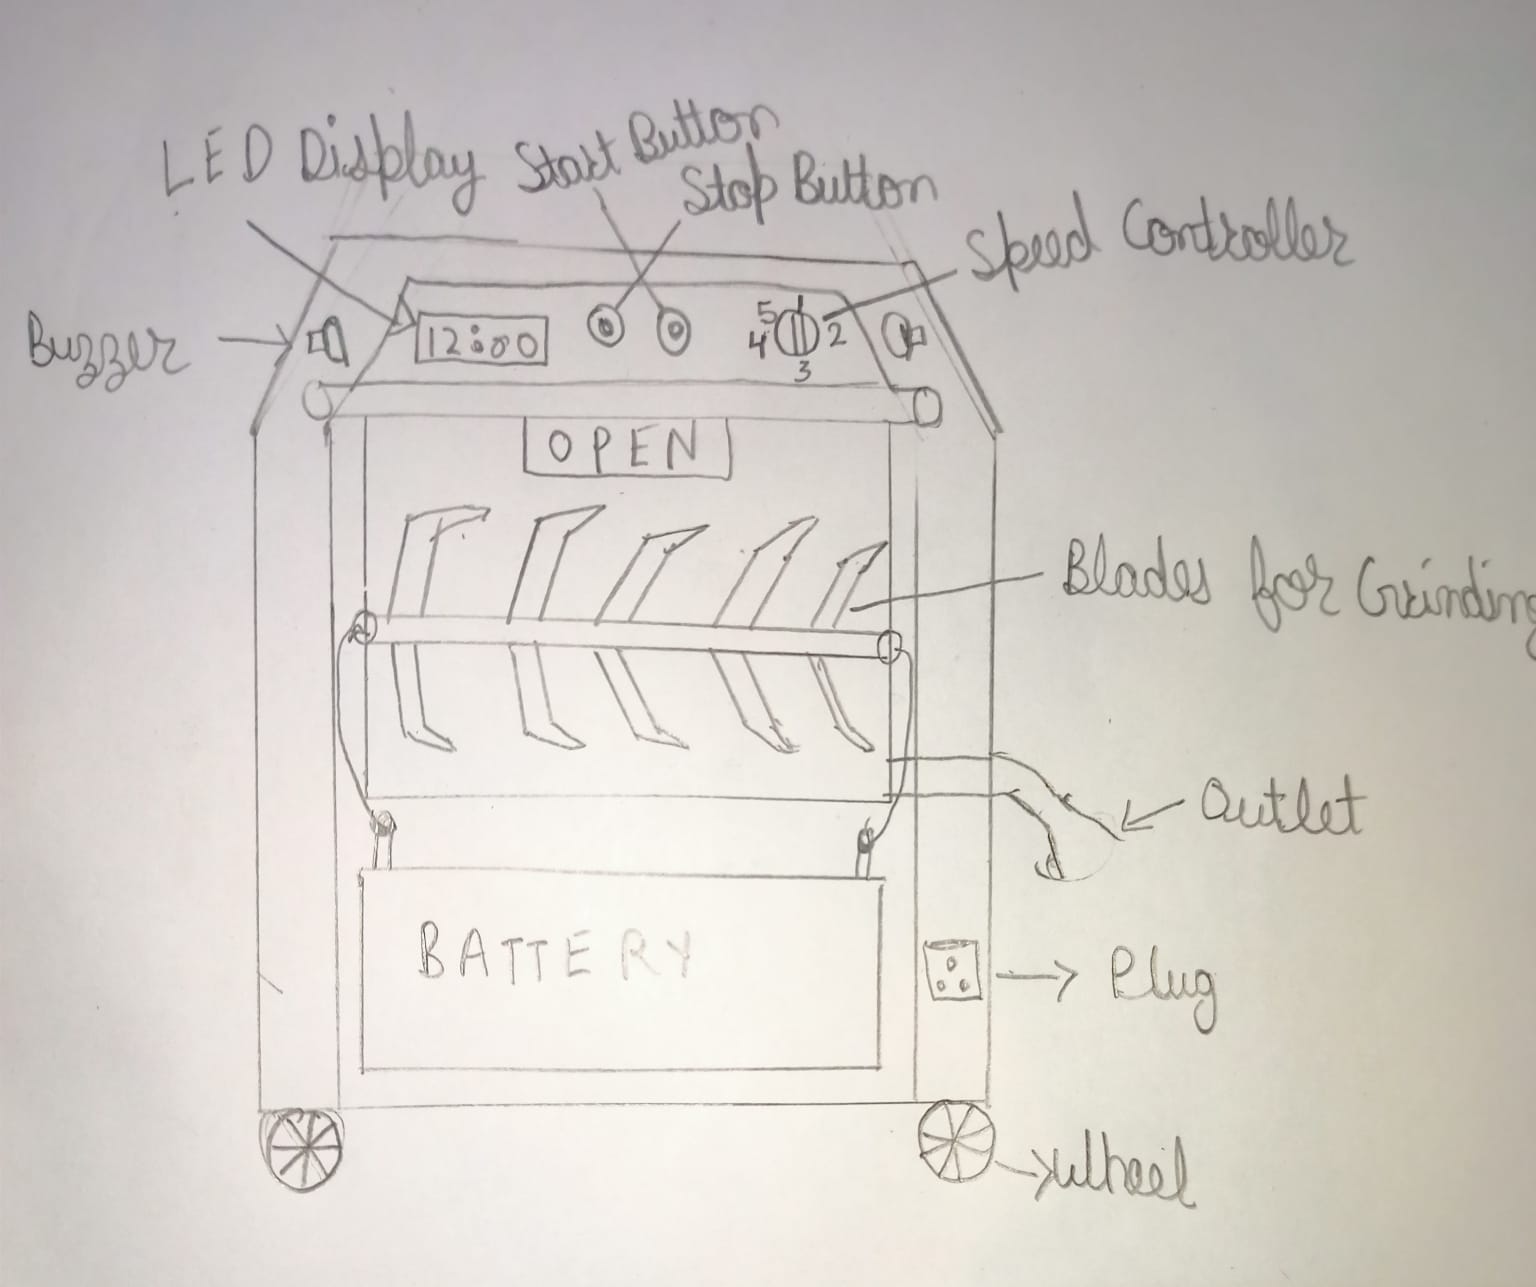 LED Display
Start Button
Stop Button
Speed Controller
Buzzer
12:00
5
4
2
3
OPEN
Blades for Grinding
Outlet
BATTERY
Plug
Wheel